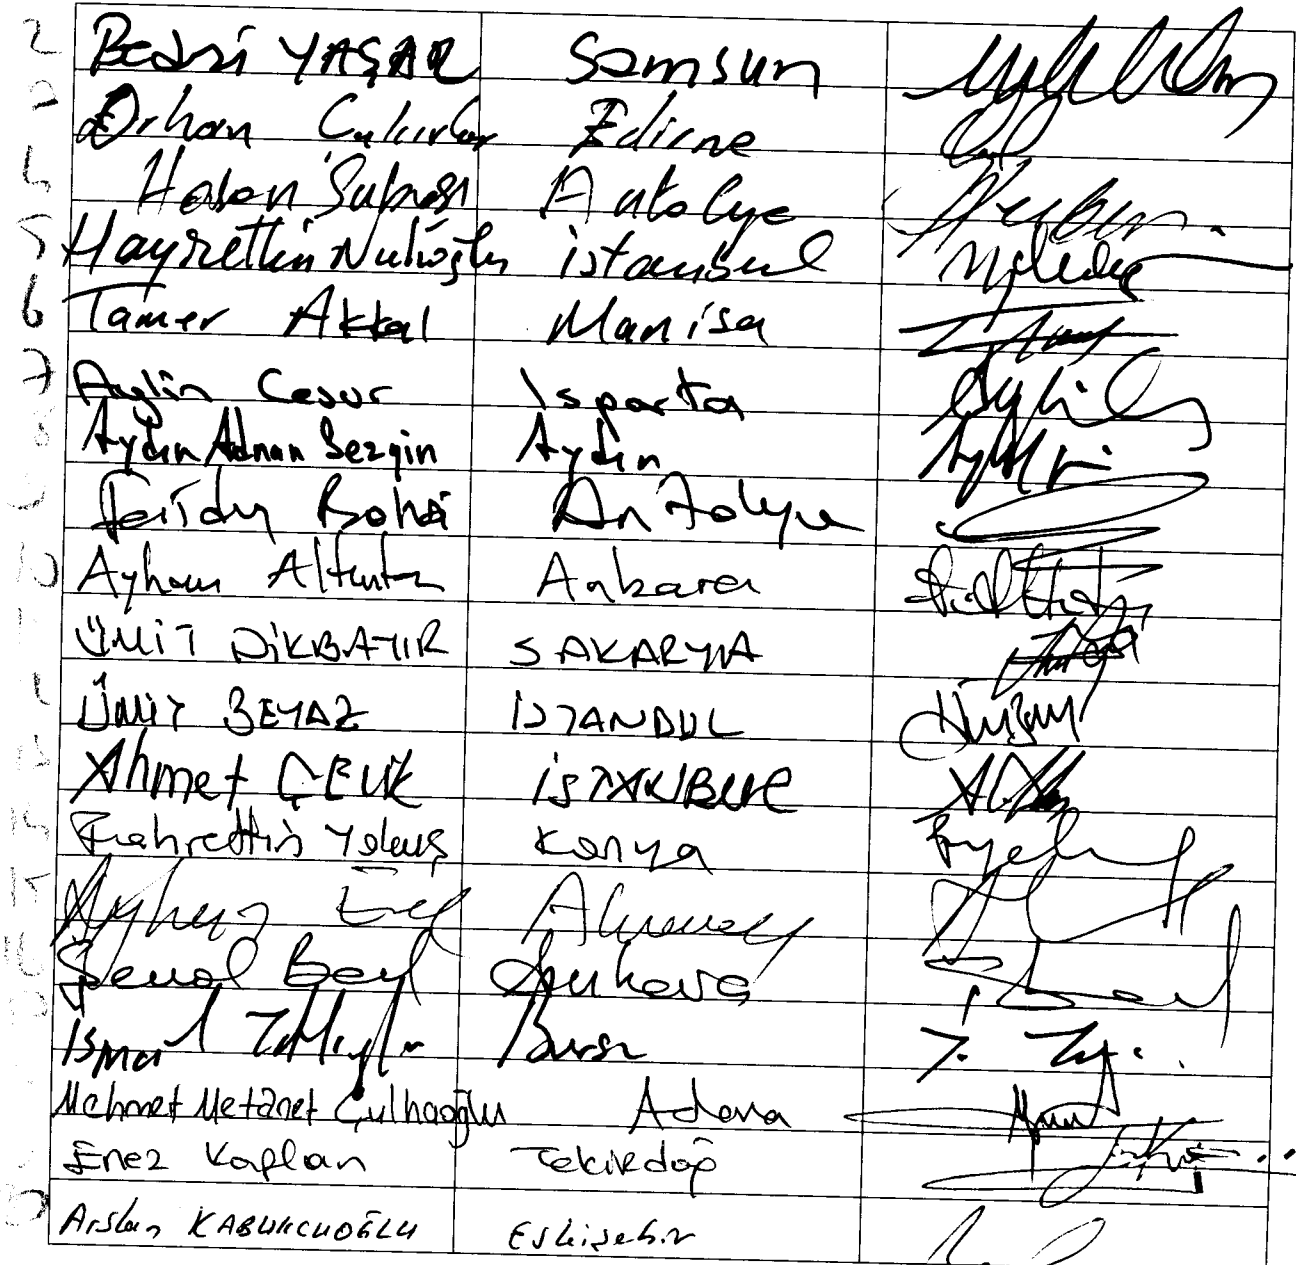 2 Bedri YAŞAR Samsun
Orhan Çakırlar Edirne
Hasan Subaşı Antalya
5 Hayrettin Nuhoğlu istanbul
6 Tamer Akkal Manisa
7 Aylin Cesur Isparta
8 Aydın Adnan Sezgin Aydın
Feridun Bahşi Antalya
Ayhan Altıntaş Ankara
ÜMiT DiKBAYIR SAKARYA
ÜMiT BEYAZ iSTANBUL
Ahmet ÇELiK iSTANBUL
Fahrettin Yokuş Konya
Ayhan Erel Aksaray
Şenol Ankara
İsmail Tatlıoğlu Bursa
Mehmet Metanet Çulhaoğlu Adana
Enez Kaplan Tekirdağ
Arslan KABUKCUOĞLU Eskişehir